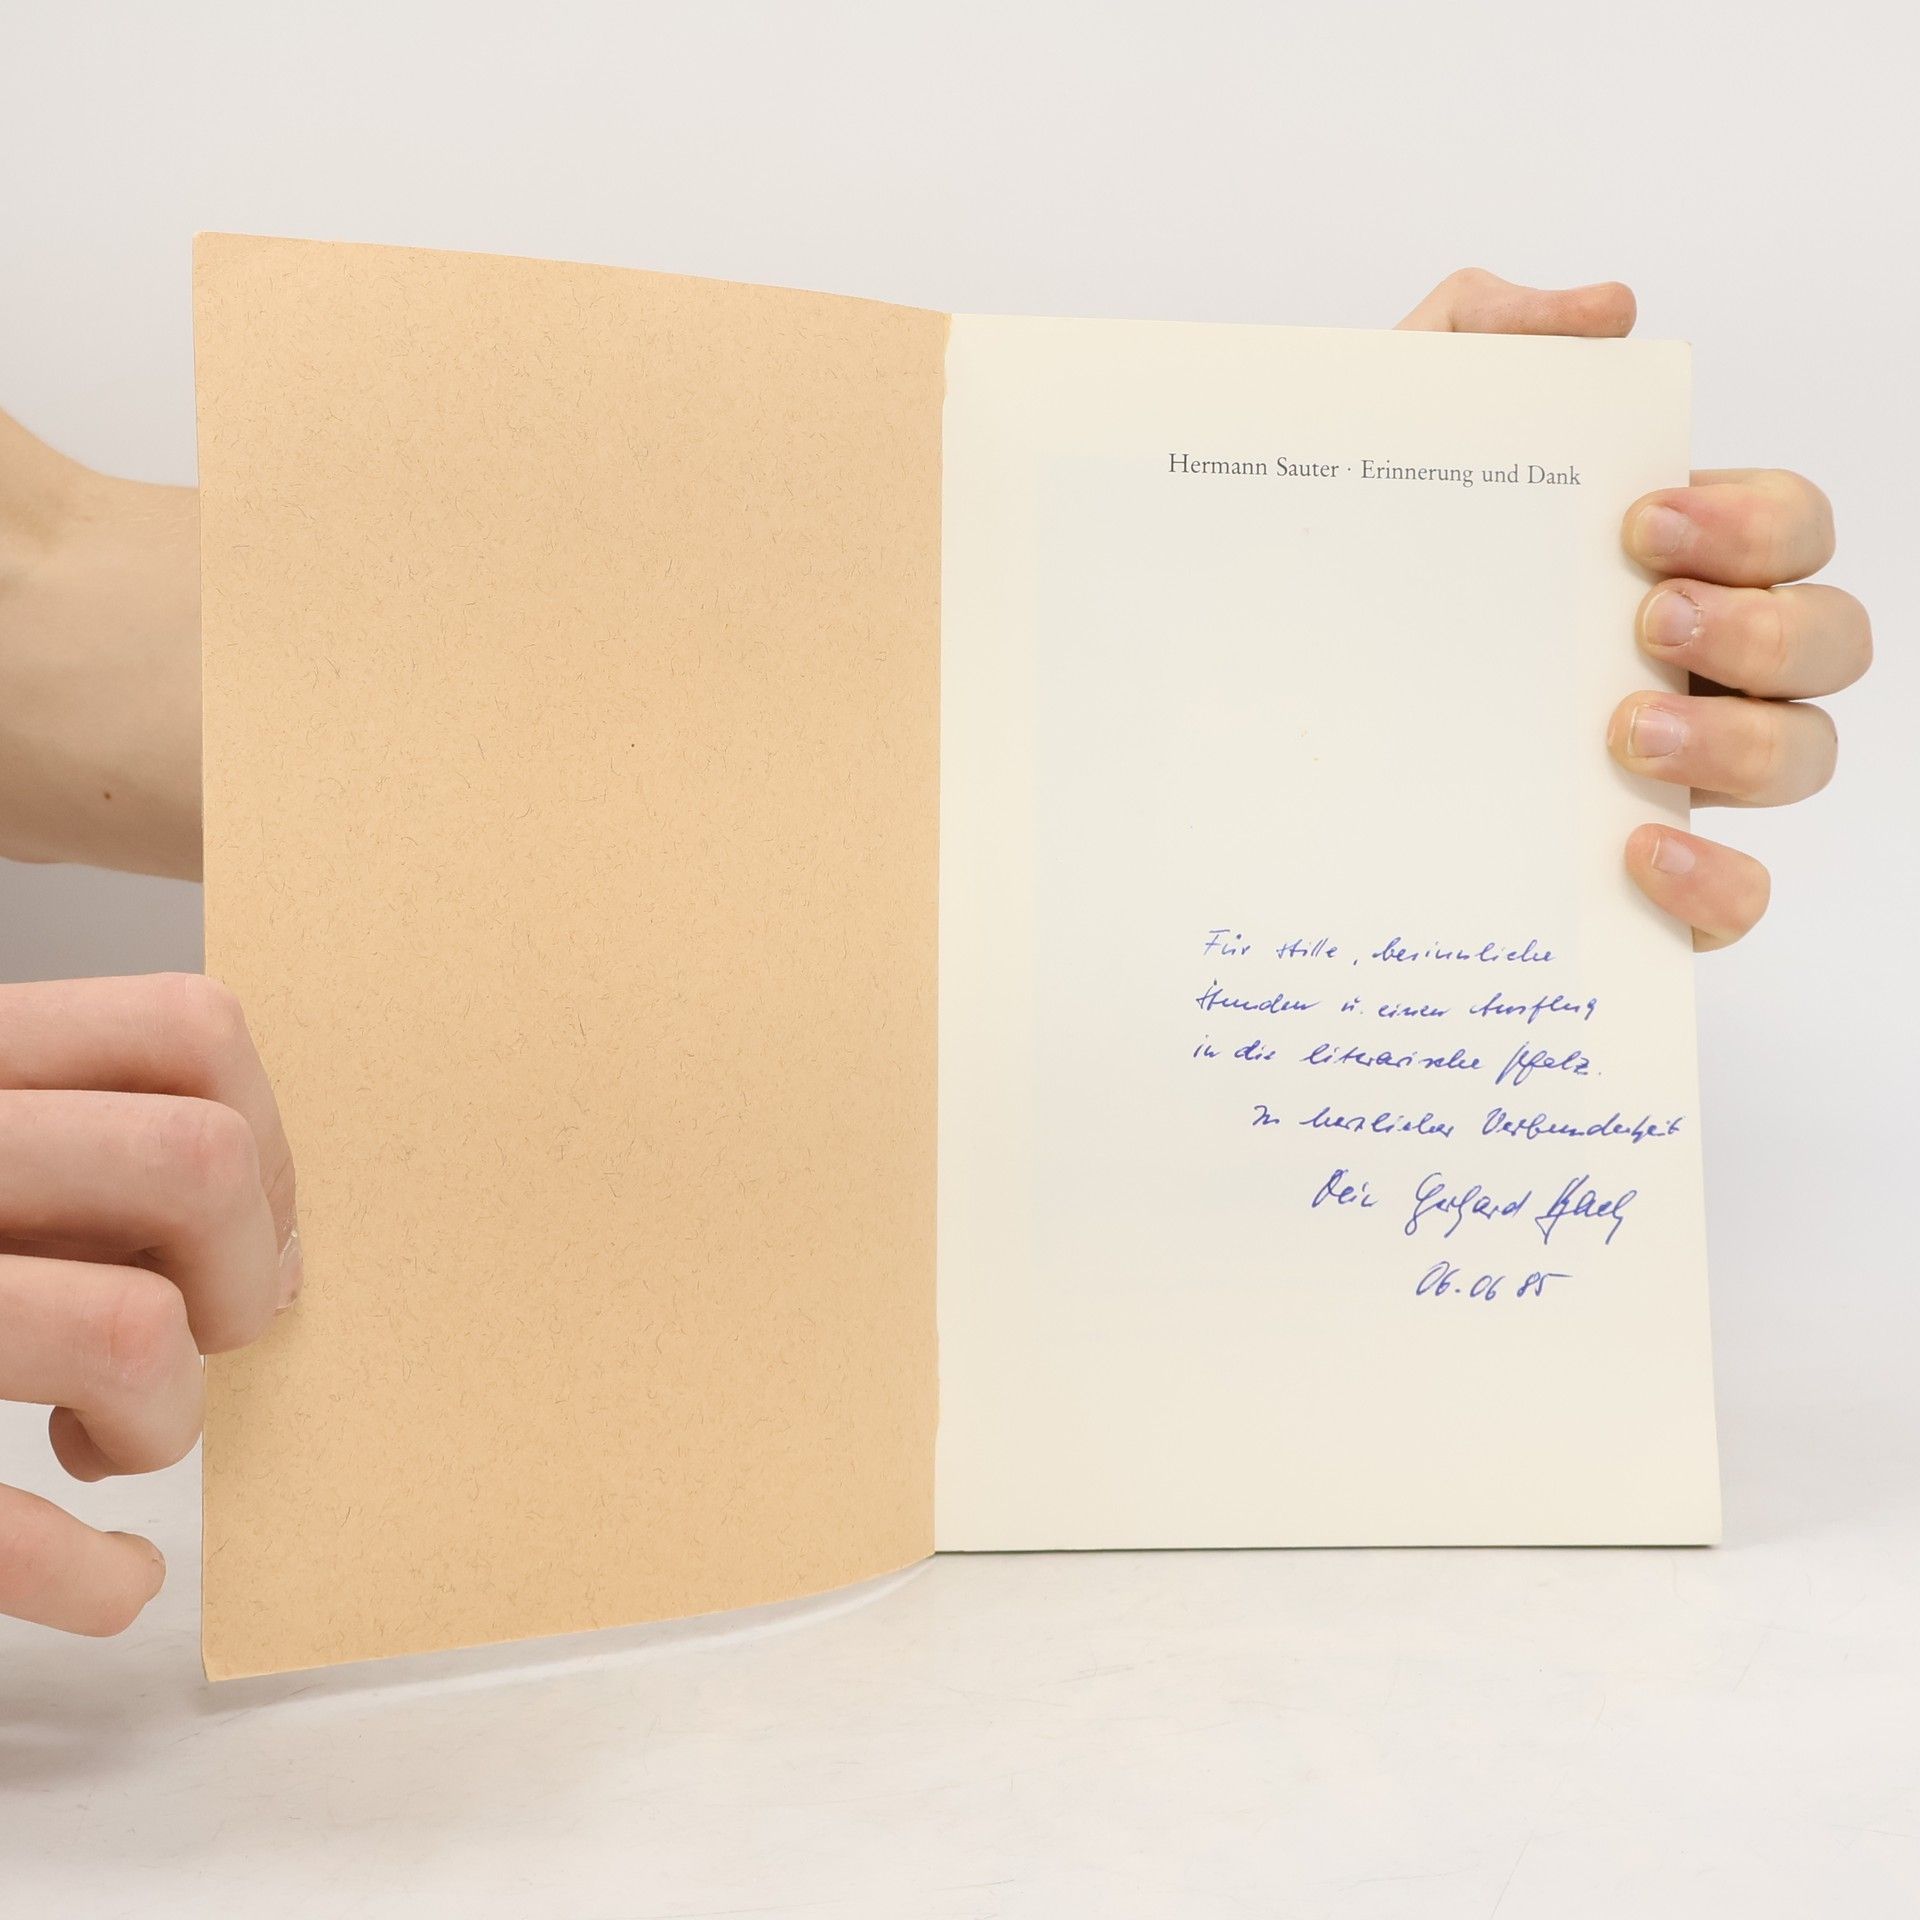 Hermann Sauter · Erinnerung und Dank
Für stille, besinnliche
Stunden u. einen Ausflug
in die literarische Pfalz.
In herzlicher Verbundenheit
Dein Gerhard
06.06 85